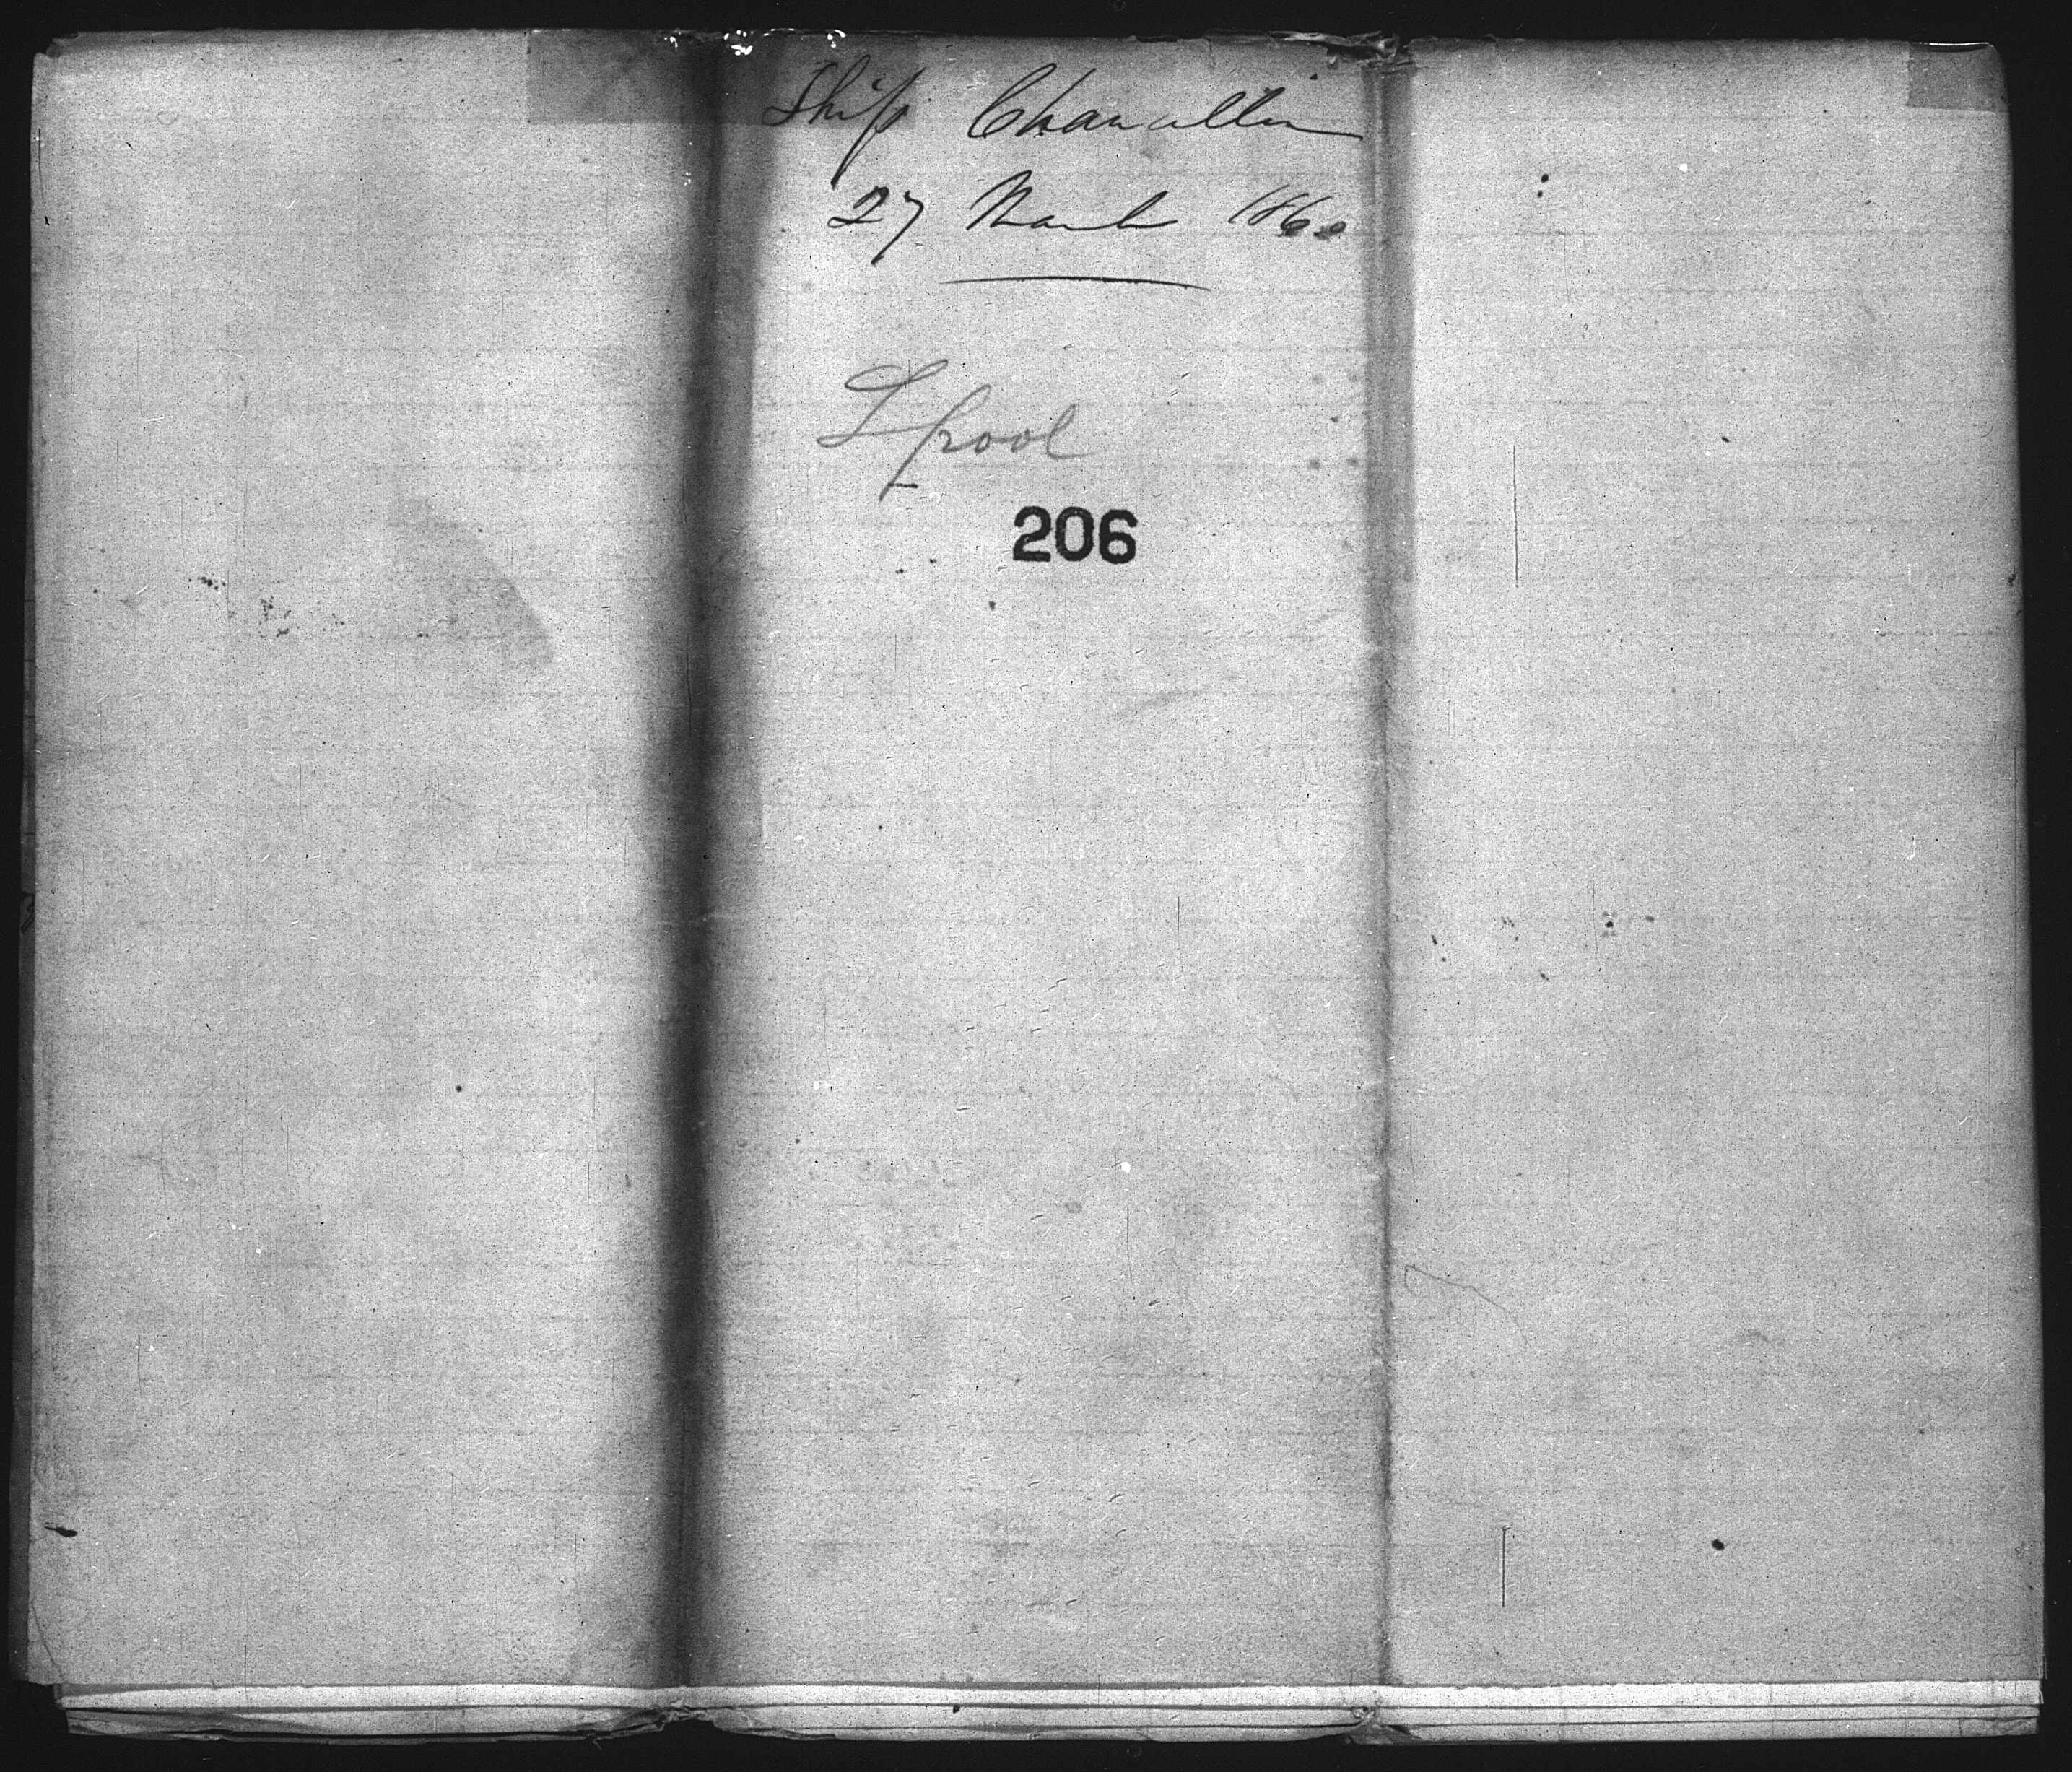 Ship Chancellor
27 March 1860
Lpool
206